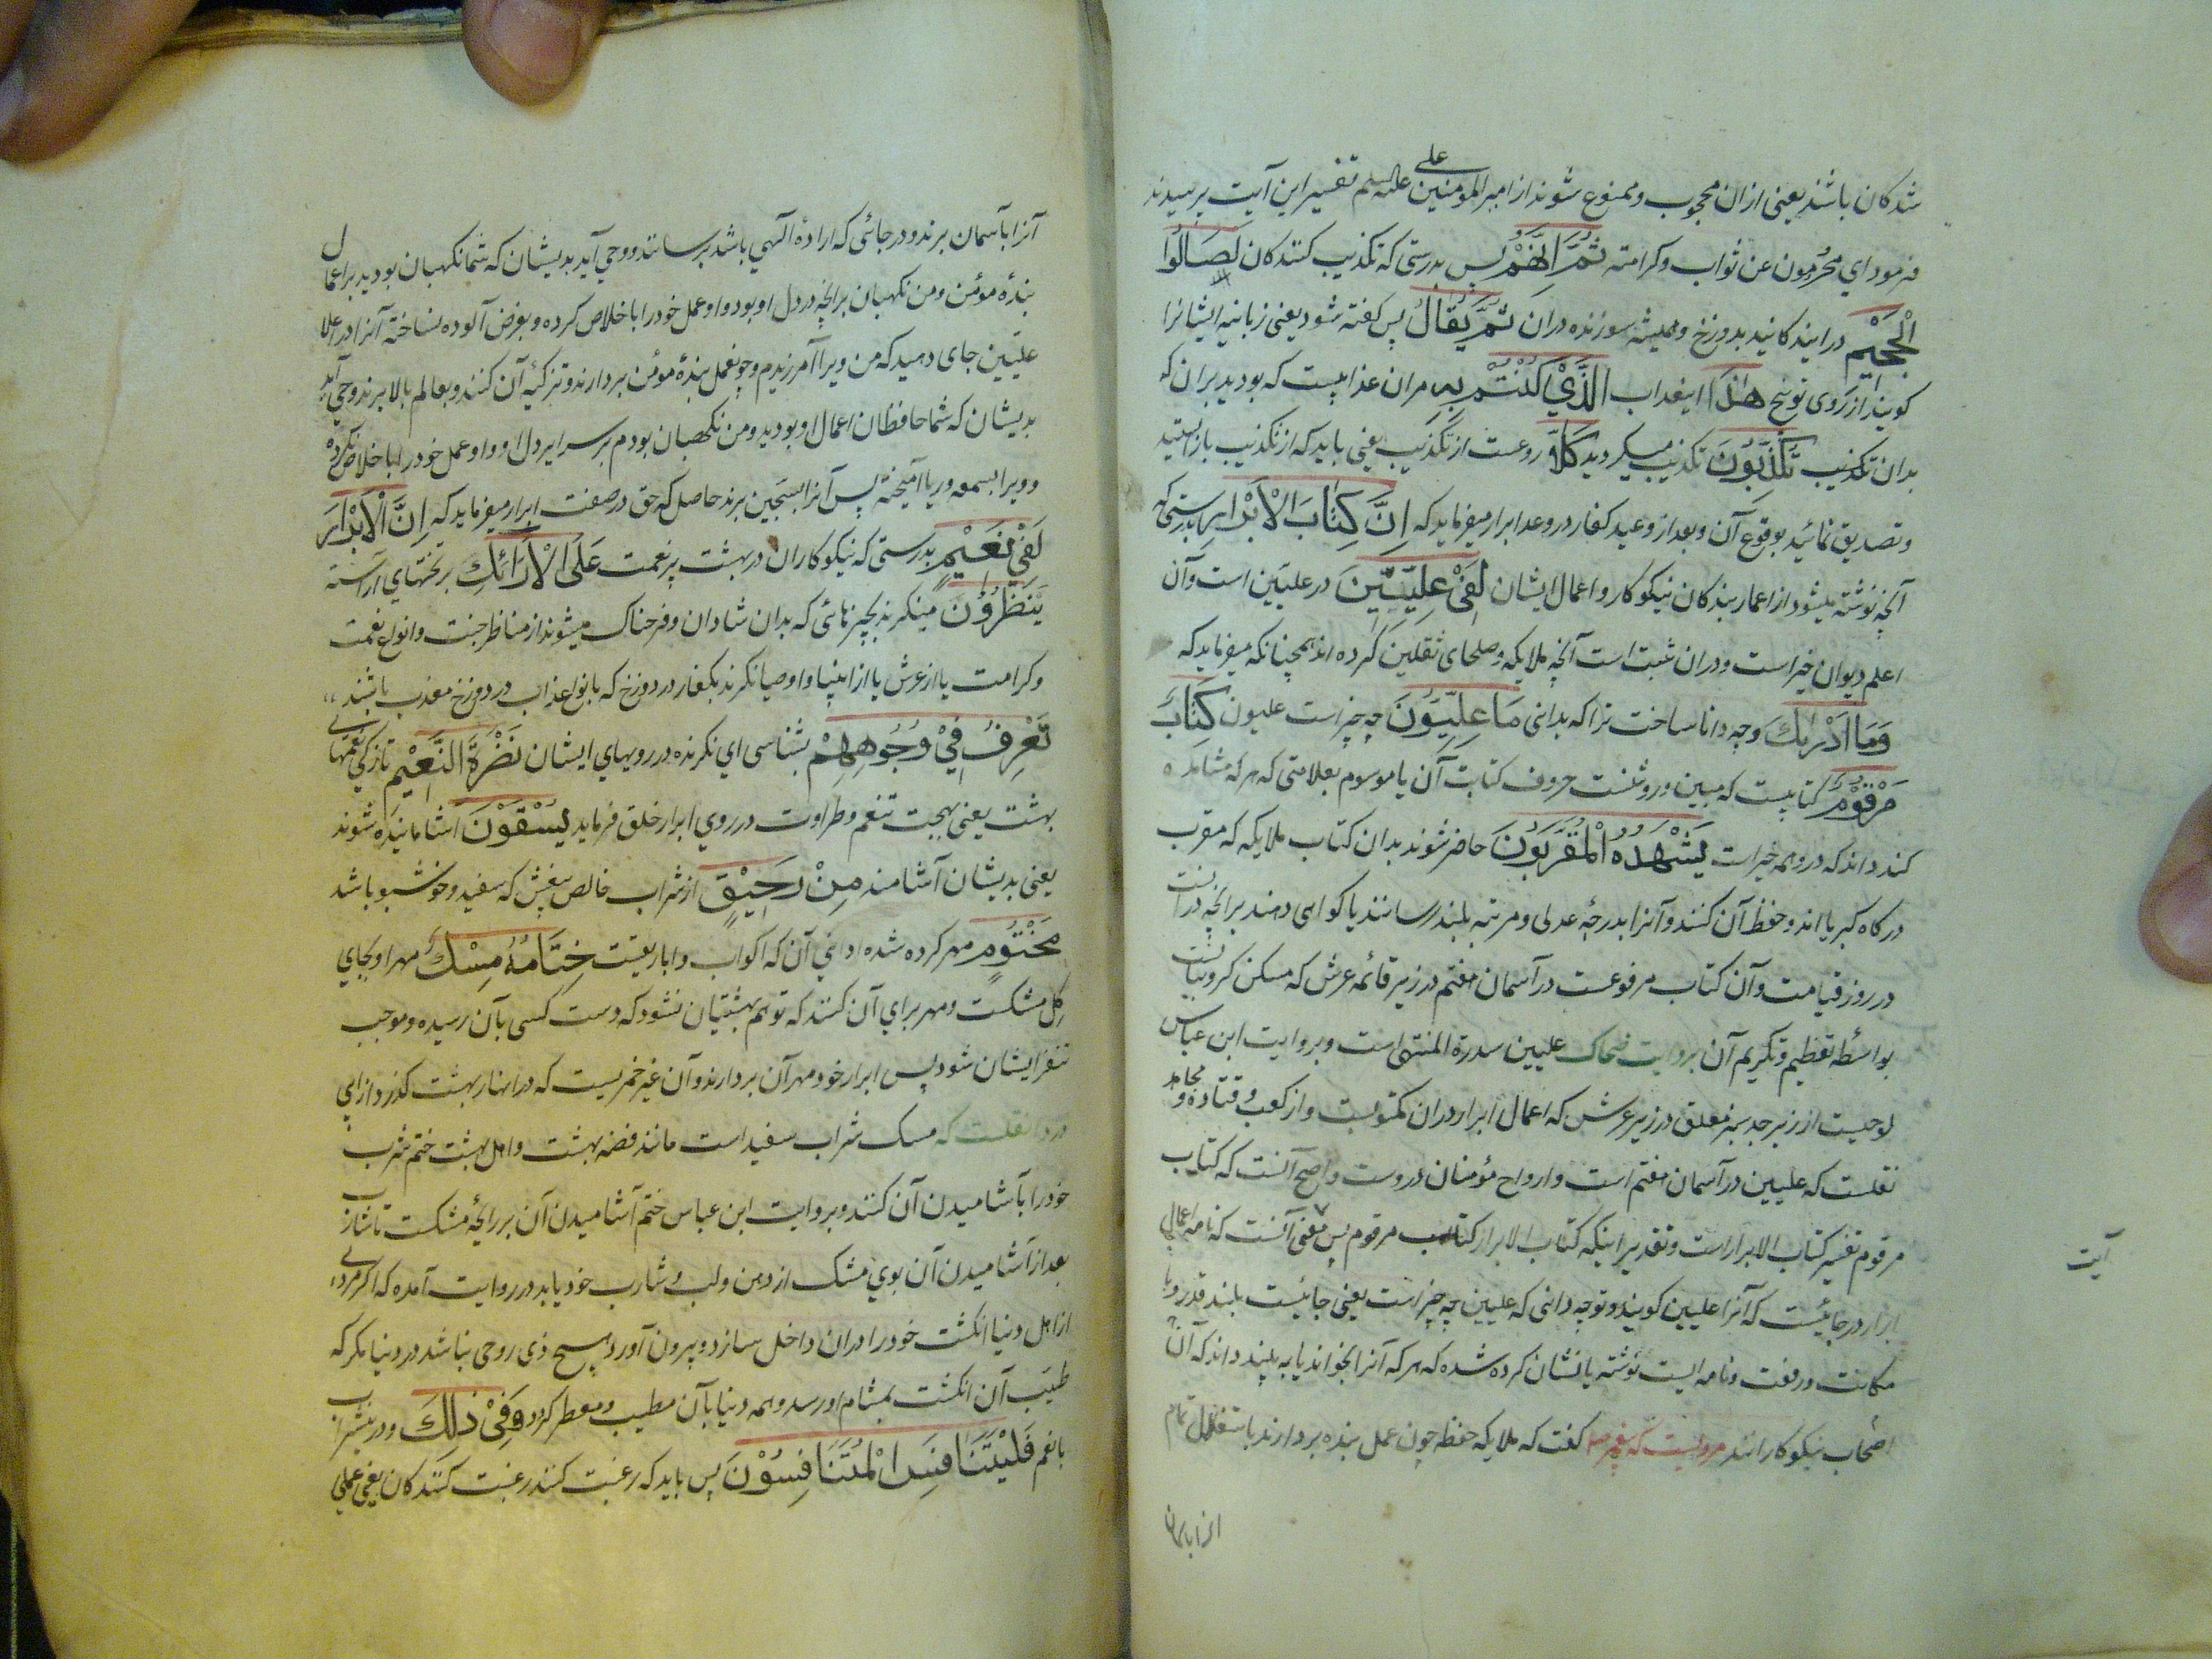 شدکان باشند یعنی ازان محجوب وممنوع شوند از امیرالمومنین علی علیه السلم تفسیر این آیت پرسیدند
فرمود ای محرومون عن ثواب وکرامته ثُمَّ اِنَّهُمْ پس بدرستی که تکذیب کنندکان لَصَالُوا
الْجَحِیْمِ درایندکانید بدوزخ وهمیشه سوزنده دران ثُمَّ یُقَالُ پس کفته شود یعنی زبانیه ایشانرا
کویند از روی توبیخ هٰذَا اینعذاب الَّذِیْ کُنْتُمْ بِهِ مران عذابیست که بودید بران که
بدان تکذیب تُکَذِّبُوْنَ تکذیب میکردید کَلَّا ردعست از تکذیب یعنی باید که از تکذیب باز ایستید
وتصدیق نمائید بوقوع آن وبعد از وعید کفار در وعد ابرار میفرماید که اِنَّ کِتَابَ الْاَبْرَارِ بدرستی که
آنچه نوشته میشود از اعمار بندکان نیکوکار واعمال ایشان لَفِیْ عِلِّیِّیْنَ در علیین است وآن
اعلم دیوان خیر است ودران ثبت است آنچه ملایکه وصلحای ثقلین کرده اند همچنانکه میفرماید که
وَمَا اَدْرٰیكَ وچه دانا ساخت ترا که بدانی مَا عِلِّیُّوْنَ چه چیز است علیون کِتَابٌ
مَرْقُوْمٌ کتابیست که مبین وروشنست حروف کتابت آن یا موسوم بعلامتی که هر که مشاهده
کند داند که درو همه خیرات یَشْهَدُهُ الْمُقَرَّبُوْنَ حاضر شوند بدان کتاب ملایکه که مقرب
درکاه کبریا اند وحفظ آن کنند وآنرا بدرجه عدلی ومرتبه بلند رسانند یا کواهی دهند برانچه درانست
در روز قیامت وآن کتاب مرفوعست در آسمان هفتم در زیر قائمه عرش که مسکن کروبیانست
بواسطه تعظیم وتکریم آن بروایت ضحاک علیین سدرة المنتهی است وبروایت ابن عباس
لوحیست از زبرجد سبز معلق در زیر عرش که اعمال ابرار دران مکتوبست واز کعب وقتاده ومجاهد
نقلست که علیین در آسمان هفتم است وارواح مؤمنان دروست واصح آنست که کتاب
مرقوم تفسیر کتاب الابرار است وتقدیر اینکه کتاب الابرار کتاب مرقوم پس معنی آنست که نامه اعمال
ابرار در جائیست که آنرا علیین کویند وتوچه دانی که علیین چه چیز است یعنی جائیست بلند قدر وبا
مکانت ورفعت ونامه ایست نوشته یا نشان کرده شده که هر که آنرا بخواند یا به بیند داند که آن
اصحاب نیکوکارانند مرویست که پیغمبر صلعم کفت که ملایکه حفظه چون عمل بنده بردارند باستقلال تمام
آیت
آنرا بآسمان
آنرا بآسمان برند ودر جائی که ارادهٔ آلهی باشد برسانند ووحی آید بدیشان که شما نکهبان بودید بر اعمال
بندهٔ مؤمن ومن نکهبان برانچه در دل او بود واو عمل خود را باخلاص کرده وبغرض آلوده نساخته آنرا در اعلا
علیین جای دهید که من ویرا آمرزیدم وچو نعمل بندهٔ مؤمن بردارند وتزکیه آن کنند وبعالم بالا برند وحی آید
بدیشان که شما حافظان اعمال او بودید ومن نکهبان بودم بر سرایر دل او واو عمل خود را باخلاص نکرده
وویرا بسمعه وریا آمیخته پس آنرا بسجین برند حاصل که حق در صفت ابرار میفرماید که اِنَّ الْاَبْرَارَ
لَفِیْ نَعِیْمٍ بدرستی که نیکوکاران در بهشت پر نعمت عَلَی الْاَرَائِكِ بر تختهای آراسته
یَنْظُرُوْنَ مینکرند بچیزهائی که بدان شادان وفرحناک میشوند از مناظر جنت وانواع نعمت
وکرامت یا از عرش یا از انبیا واوصیا نکرند بکفار در دوزخ که بانواع عذاب در دوزخ معذب باشند
تَعْرِفُ فِیْ وُجُوْهِهِمْ بشناسی ای نکرنده در رویهای ایشان نَضْرَةَ النَّعِیْمِ تازکی نعمتهای
بهشت یعنی بهجت تنعم وطراوت در روی ابرار خلق فرماید یُسْقَوْنَ آشامانیده شوند
یعنی بدیشان آشامند مِنْ رَحِیْقٍ از شراب خالص بیغش که سفید وخوشبو باشد
مَخْتُوْمٍ مهر کرده شده اوانی آن که اکواب واباریقست خِتَامُهُ مِسْكٌ مهر او بجای
کل مشکست ومهر برای آن کنند که توهم بهشتیان نشود که دست کسی بآن رسیده وموجب
تنفر ایشان شود پس ابرار خود مهر آن بردارند وآن غیر خمریست که در انهار بهشت کذرد از ابی
دردا نقلست که مسک شراب سفید است مانند فضه بهشت واهل بهشت ختم شرب
خود را بآشامیدن آن کنند وبروایت ابن عباس ختم آشامیدن آن بر رایحهٔ مشکست تا شارب
بعد از آشامیدن آن بوی مشک از دهن ولب وشارب خود یابد در روایت آمده که اکر مردی
از اهل دنیا انکشت خود را دران داخل سازد وبیرون آورد هیچ ذی روحی نباشد در دنیا مکر که
طیب آن انکشت بمشام او رسد وهمه دنیا بآن مطیب ومعطر کردد وَفِیْ ذٰلِكَ ودر شراب
بانعم فَلْیَتَنَافَسِ الْمُتَنَافِسُوْنَ پس باید که رغبت کنند رغبت کنندکان یعنی عملی